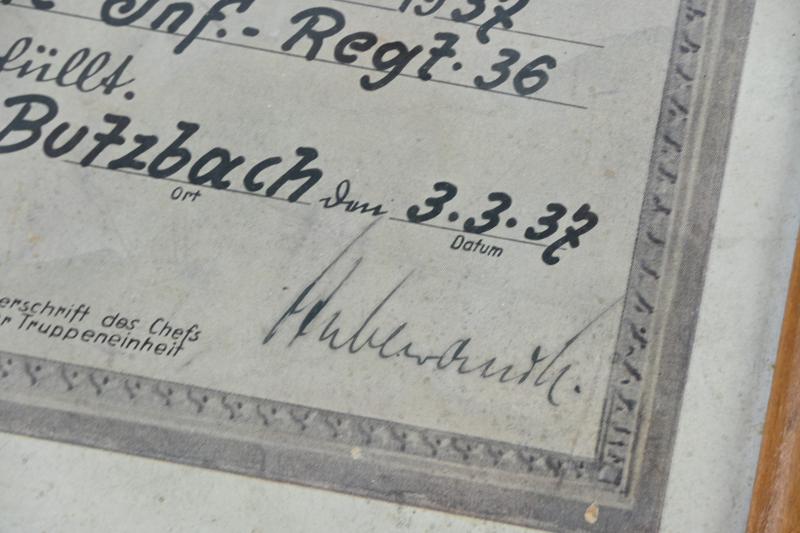 1937
Inf.-Regt. 36
füllt.
Butzbach den 3.3.37
Ort Datum
erschrift des Chefs
r Truppeneinheit